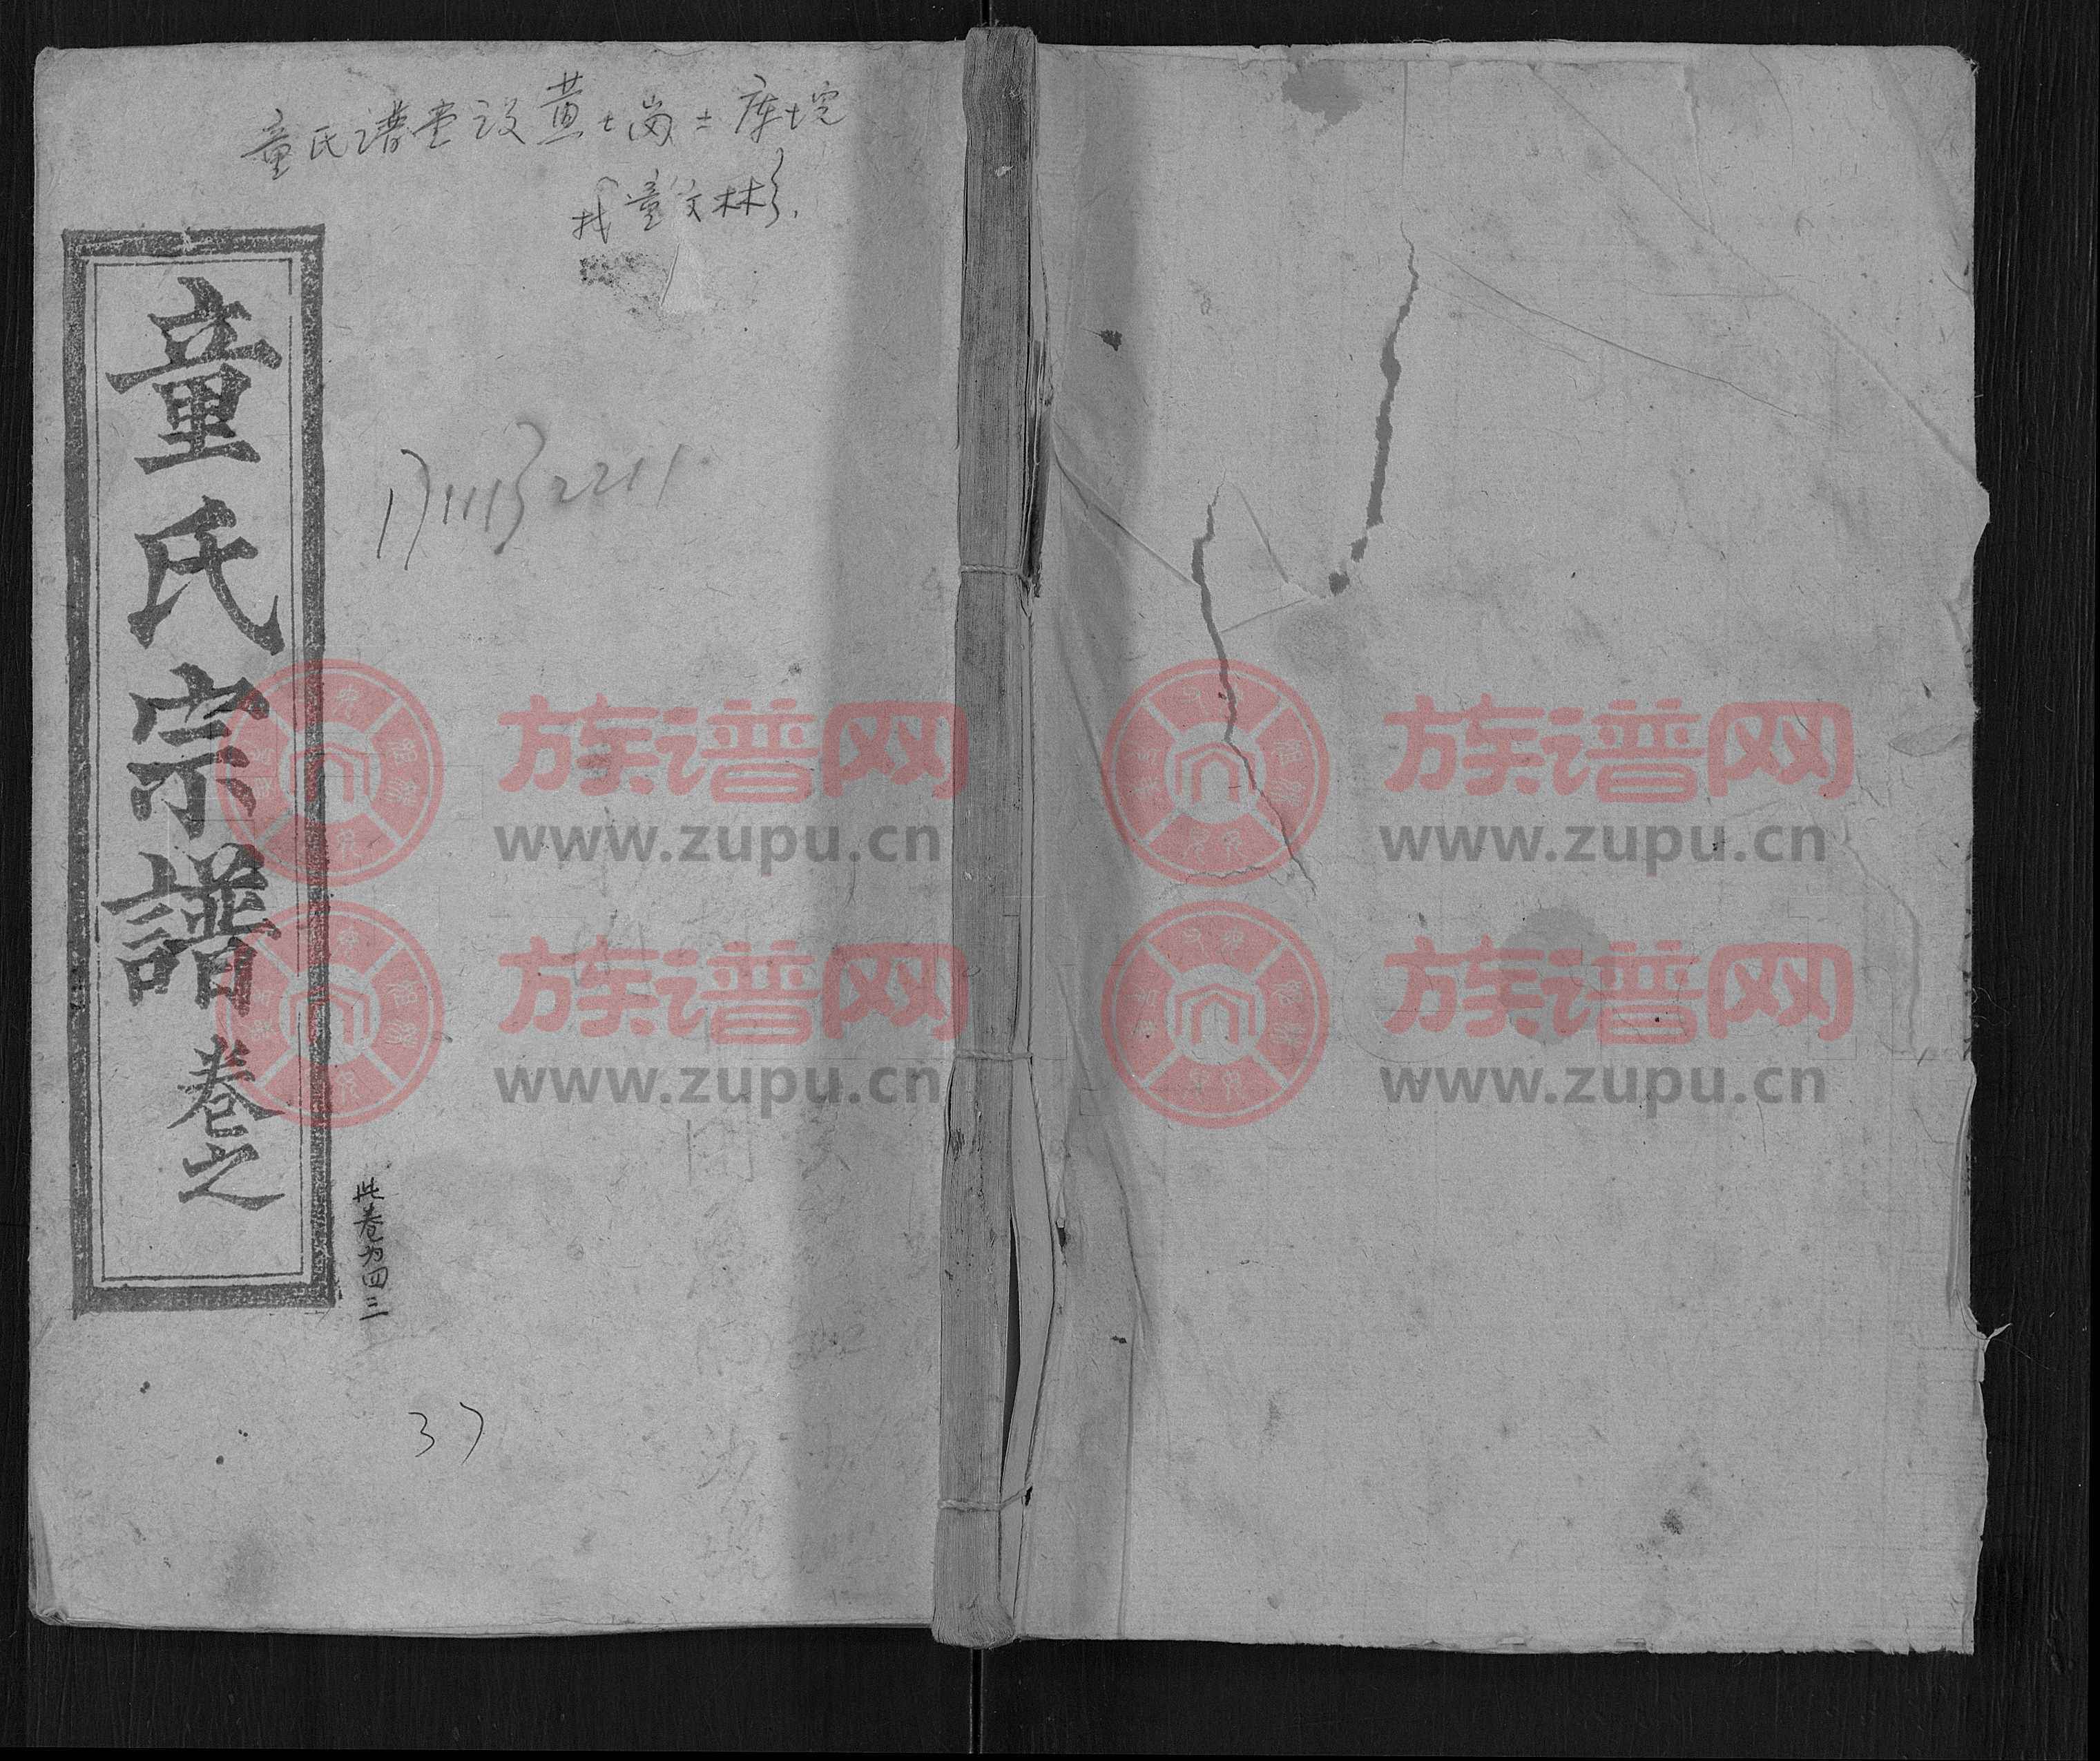 童氏谱堂设黄土岗土库垸
找童文彬
童氏宗譜 卷之
17111132211
此卷为四三
37
族谱网
www.zupu.cn
族谱网
www.zupu.cn
族谱网
www.zupu.cn
族谱网
www.zupu.cn